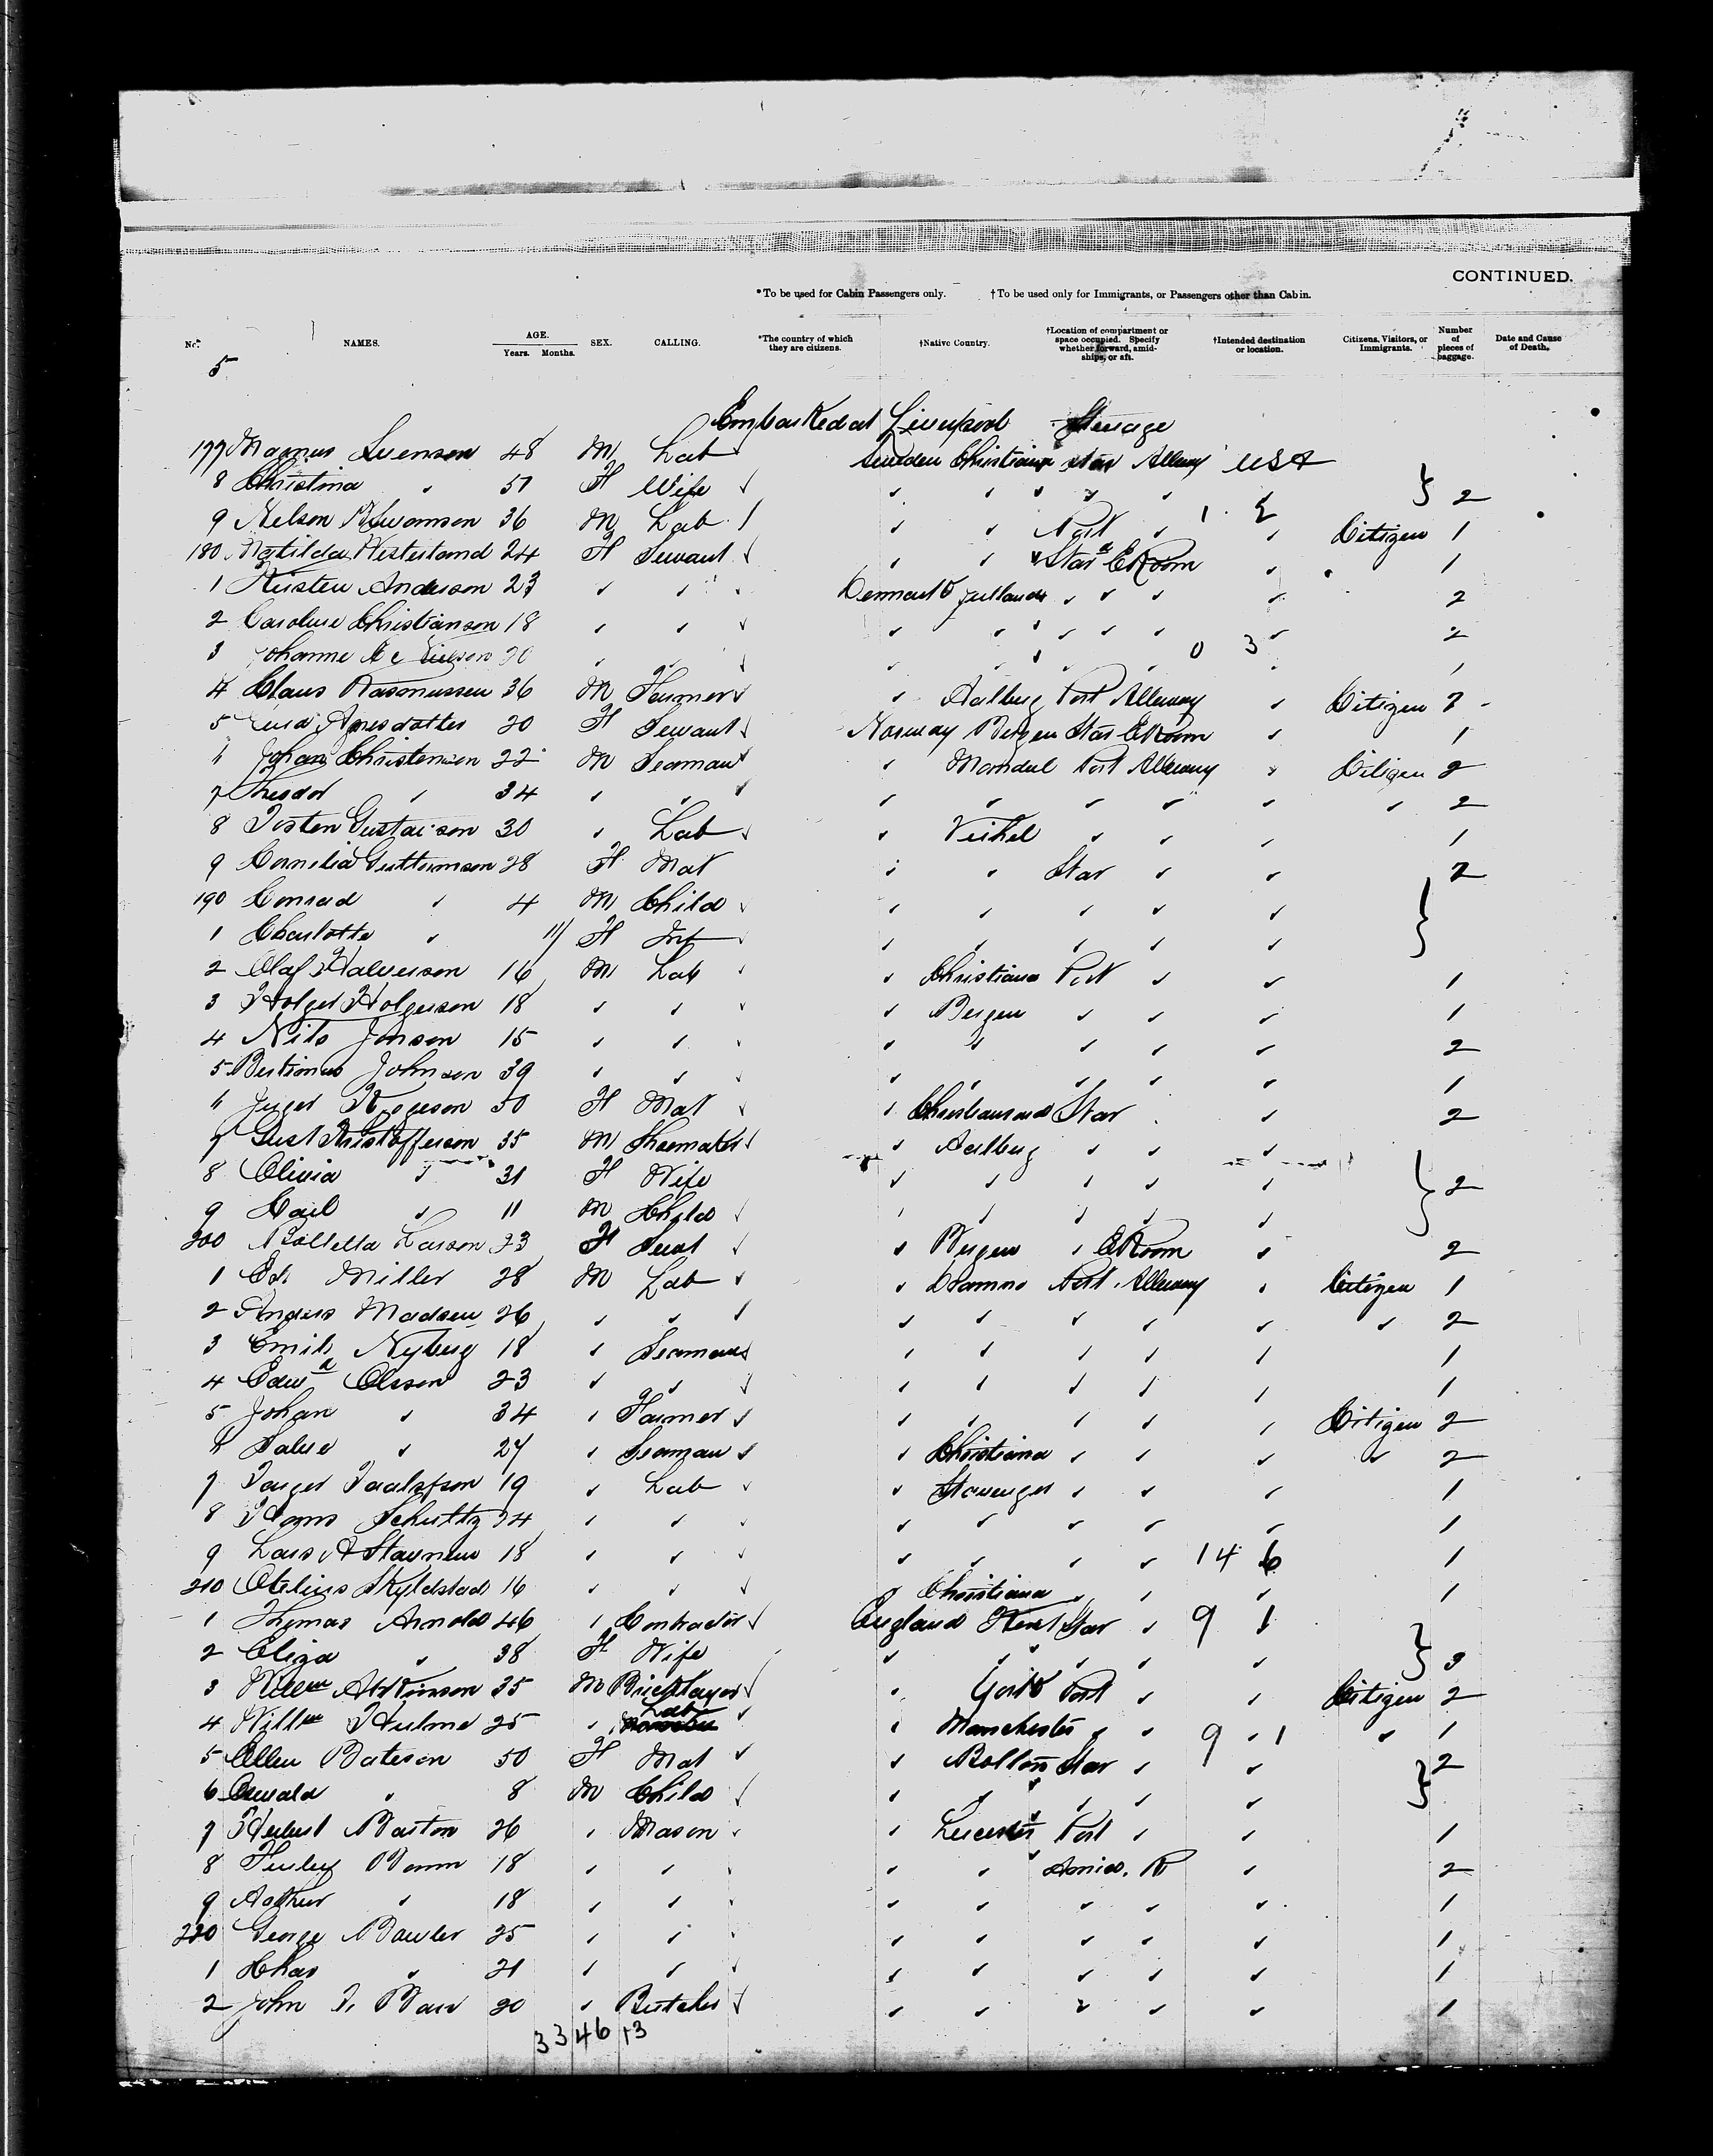 CONTINUED.
*To be used for Cabin Passengers only. †To be used only for Immigrants, or Passengers other than Cabin.
No. NAMES. AGE. Years. Months. SEX. CALLING. *The country of which they are citizens. †Native Country. †Location of compartment or space occupied. Specify whether forward, amidships, or aft. †Intended destination or location. Citizens, Visitors, or Immigrants. Number of pieces of baggage. Date and Cause of Death.
5
Embarked at Liverpool Steerage
177 Magnus Svenson 48 M Lab Sweden Christiana Star Allway USA
8 Christina " 51 F Wife " " " " " } 2
9 Nelson Swanson 36 M Lab " " Port " 1 2 " Citizen 1
180 Matilda Westerland 24 F Servant " " Star E Room " 1
1 Kirsten Anderson 23 " " Denmark Jutland " " " 2
2 Caroline Christianson 18 " " " " " " " 2
3 Johanne 20 " " " " " " 0 3 " 1
4 Claus Rasmussen 36 M Farmer " Aalberg Port Allway " Citizen 2
5 20 F Servant Norway Bergen Star E Room " 1
6 Johan Christensen 22 M Seaman " Mandal Port Allway " Citizen 2
7 Theodor " 34 " " " " " " " " 2
8 Gustavson 30 " Lab " " " " 1
9 Cornelia 28 F Mat " " Star " " 2
190 Conrad " 4 M Child " " " " " }
1 Charlotte " 11 F Inf " " " " "
2 Olaf Halverson 16 M Lab " Christiana Port " " 1
3 Holger Holgerson 18 " " " Bergen " " " 1
4 Nils Jonson 15 " " " " " " " 2
5 Johnson 39 " " " " " " " 1
6 50 F Mat " Christiansand Star " 2
7 Gust Kristofferson 35 M Shoemaker " Aalberg " " "
8 Olivia " 31 F Wife " " " " " } 2
9 Carl " 11 M Child " " " " "
200 Larson 23 F Servt " Bergen " E Room " 2
1 Ed. Miller 28 M Lab " Port Allway " Citizen 1
2 Anders Madsen 26 " " " " " " " " 2
3 Emil Nyberg 18 " Seaman " " " " " 1
4 Edwd Olsson 23 " " " " " " " 1
5 Johan " 34 " Farmer " " " " " Citizen 2
6 " 27 " Seaman " Christiana " " " " 2
7 19 " Lab " Stavenger " " " 1
8 Hans Schultz 24 " " " " " " " 1
9 Lars 18 " " " " " " 14 6 1
210 16 " " " Christiana " " " 1
1 Thomas Arnold 46 " Contractor England Kent Star " 9 1
2 Eliza " 38 F Wife " " " " " } 3
3 Willm Atkinson 35 M Bricklayer " York Port " " Citizen 2
4 Willm Hulme 25 " Lab " Manchester " " 9 1 " 1
5 Ellen Bateson 50 F Mat " Bolton Star " " } 2
6 Oswald " 8 M Child " " " " "
7 Herbert Barton 26 " Mason " Leicester Port " " 1
8 18 " " " " Amids. R " 2
9 Arthur " 18 " " " " " " " 1
220 George 25 " " " " " " " 1
1 Chas " 21 " " " " " " " 1
2 John 20 " Butcher " " " " " 1
33 46 13